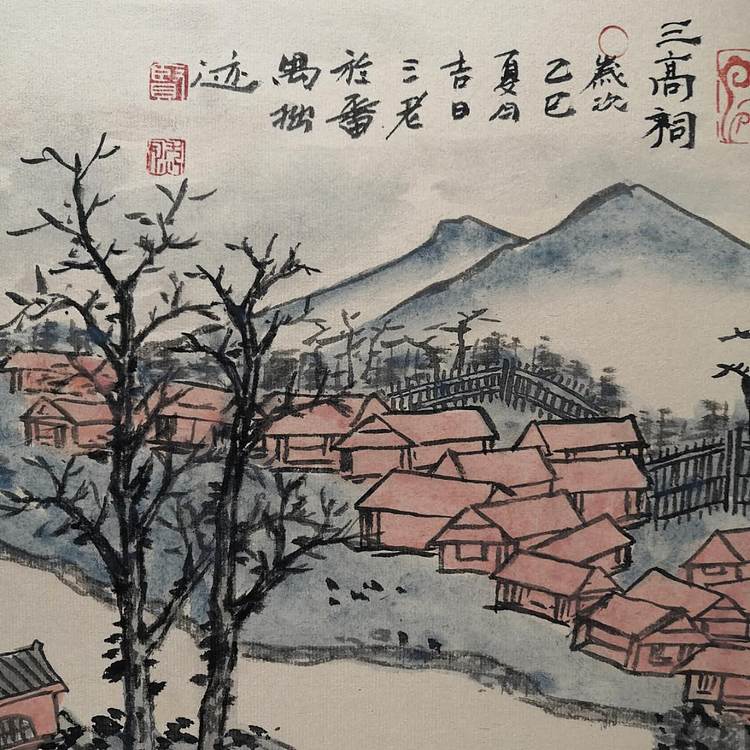 三高祠
歲次
乙巳
夏月
吉日
三老
於番
禺拙
迹
賢